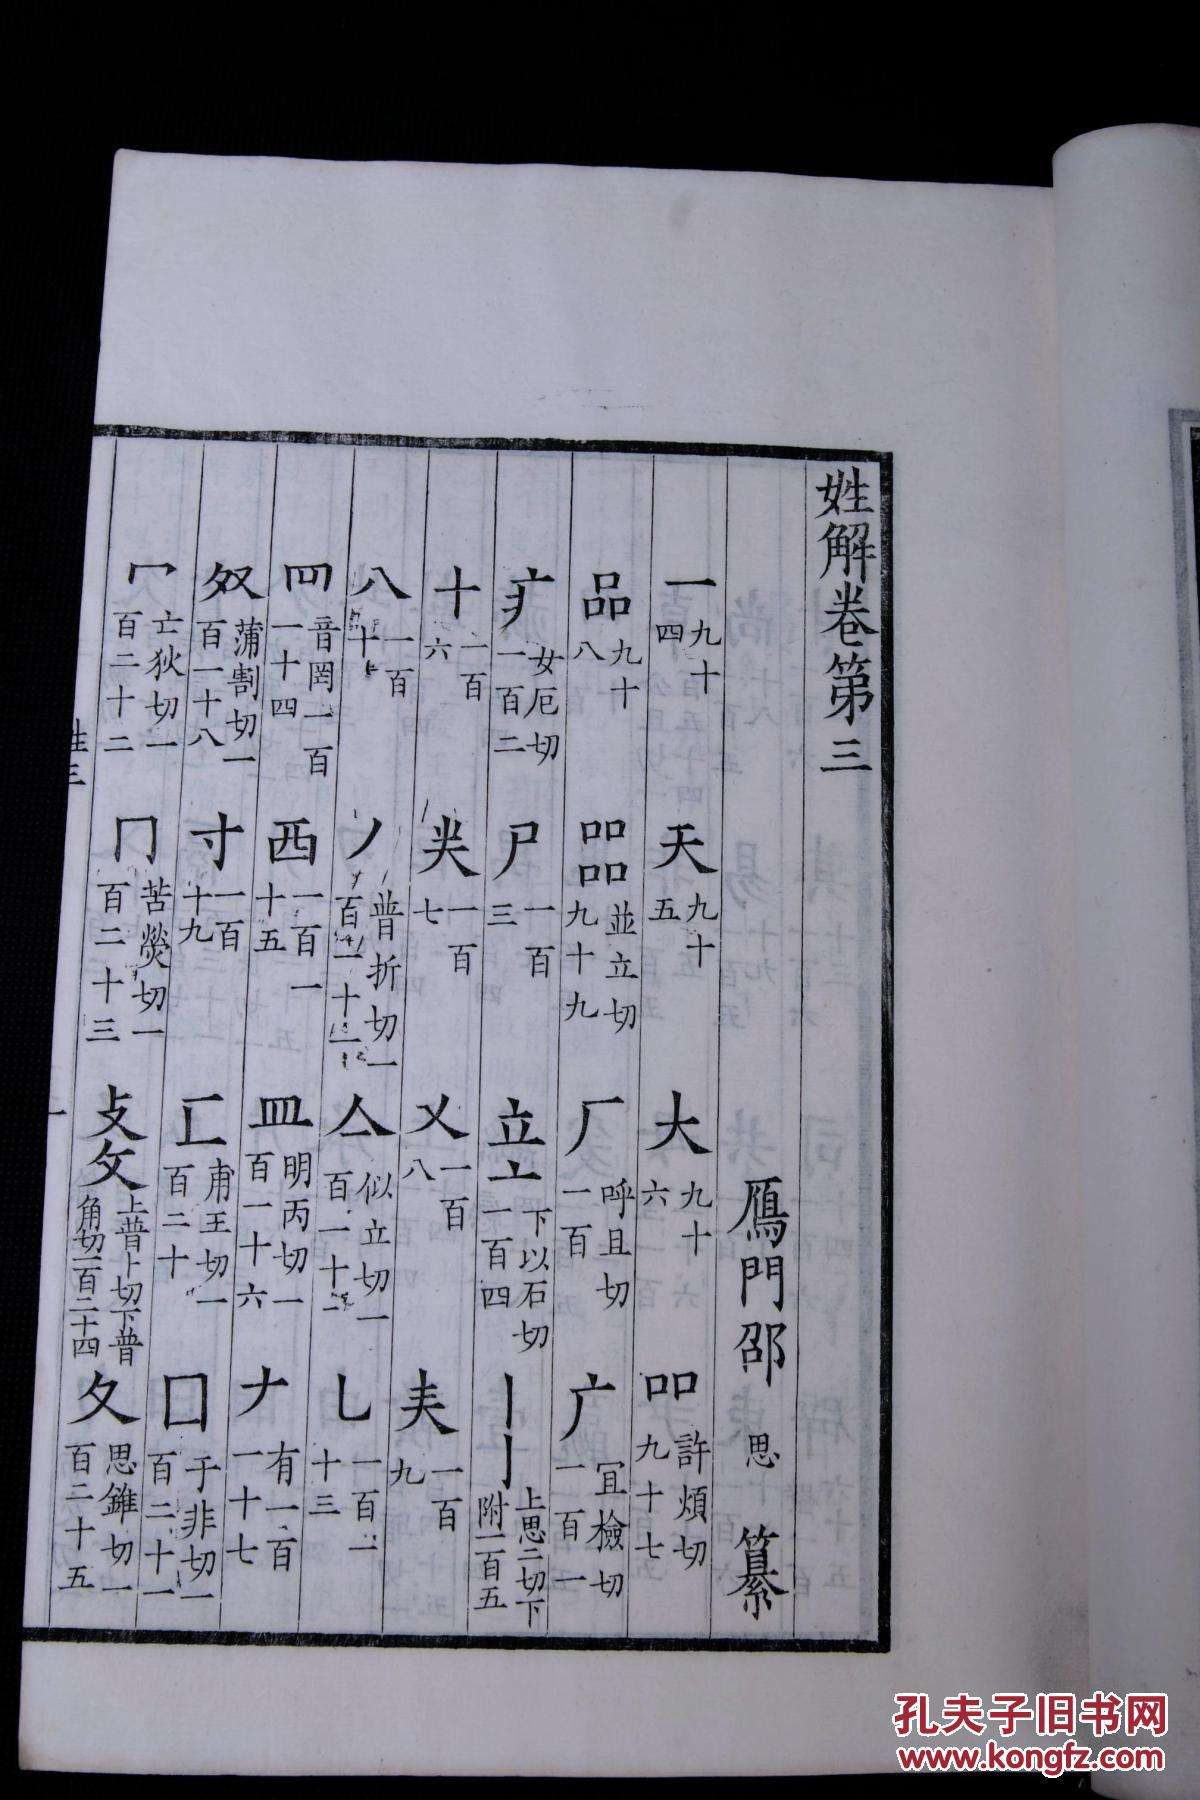 姓解卷第三
鴈門邵 思 纂
一九十四 天九十五 大九十六 吅許煩切九十七
品九十八 㗊並立切九十九 厂呼旦切一百 广宜檢切一百一
疒女厄切一百二 尸一百三 立亠下以石切一百四 丨亅上思二切下附一百五
十一百六 一百七 乂一百八 夫一百九
八一百十 丿普折切一百一十一 亼似立切一百一十二 乚一百一十三
罒音罔一百一十四 西一百一十五 皿明丙切一百一十六 𠂇有一百一十七
癶蒲割切一百一十八 寸一百一十九 匚甫王切一百二十 囗于非切一百二十一
冖亡狄切一百二十二 冂苦熒切一百二十三 攴攵上普卜切下普角切一百二十四 夊思錐切一百二十五
姓三
一
孔夫子旧书网
www.kongfz.com